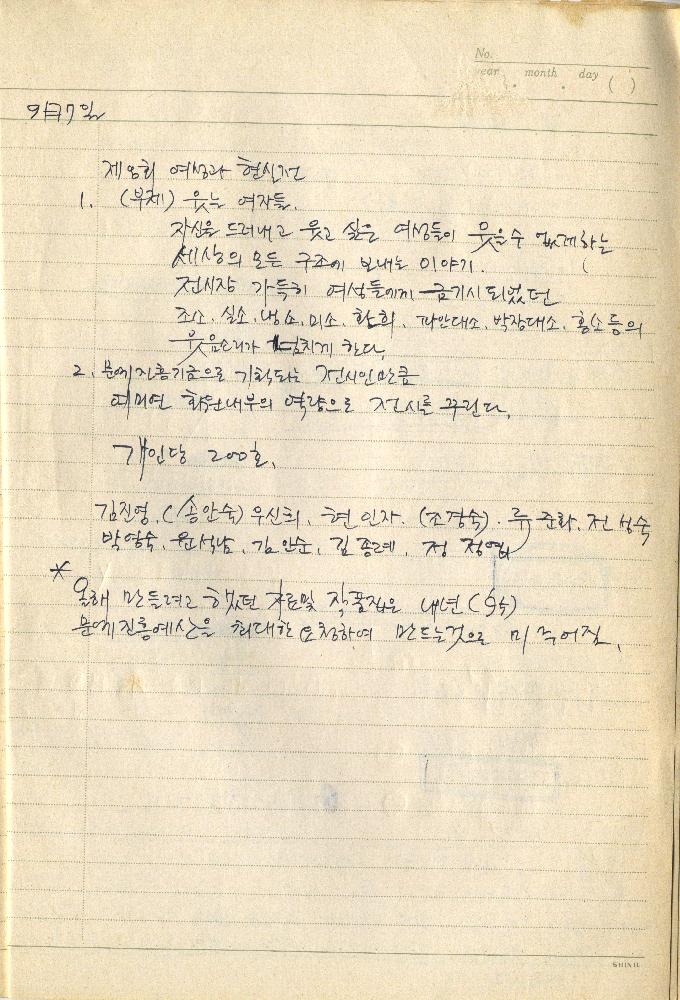 No.
year . month . day ( )
9月7일
제8회 여성과 현실전
1. (부제) 웃는 여자들.
자신을 드러내고 웃고 싶은 여성들이 웃을수 없게하는
세상의 모든 구조에 보내는 이야기.
전시장 가득히 여성들에게 금기시 되었던
조소, 실소, 냉소, 미소, 환희, 파안대소, 박장대소, 홍소 등의
웃음소리가 넘치게 한다.
2. 문예진흥기금으로 기획되는 전시인만큼
여미연 회원내부의 역량으로 전시를 꾸린다.
개인당 200호.
김진영, (송안숙) 우신희, 현인자. (조경숙). 류준화, 전성숙
박영숙, 윤석남, 김인순, 김종례, 정정엽
* 올해 만들려고 했던 자료및 작품집은 내년 (95)
문예진흥예산을 최대한 요청하여 만드는것으로 미루어짐.
SHINIL